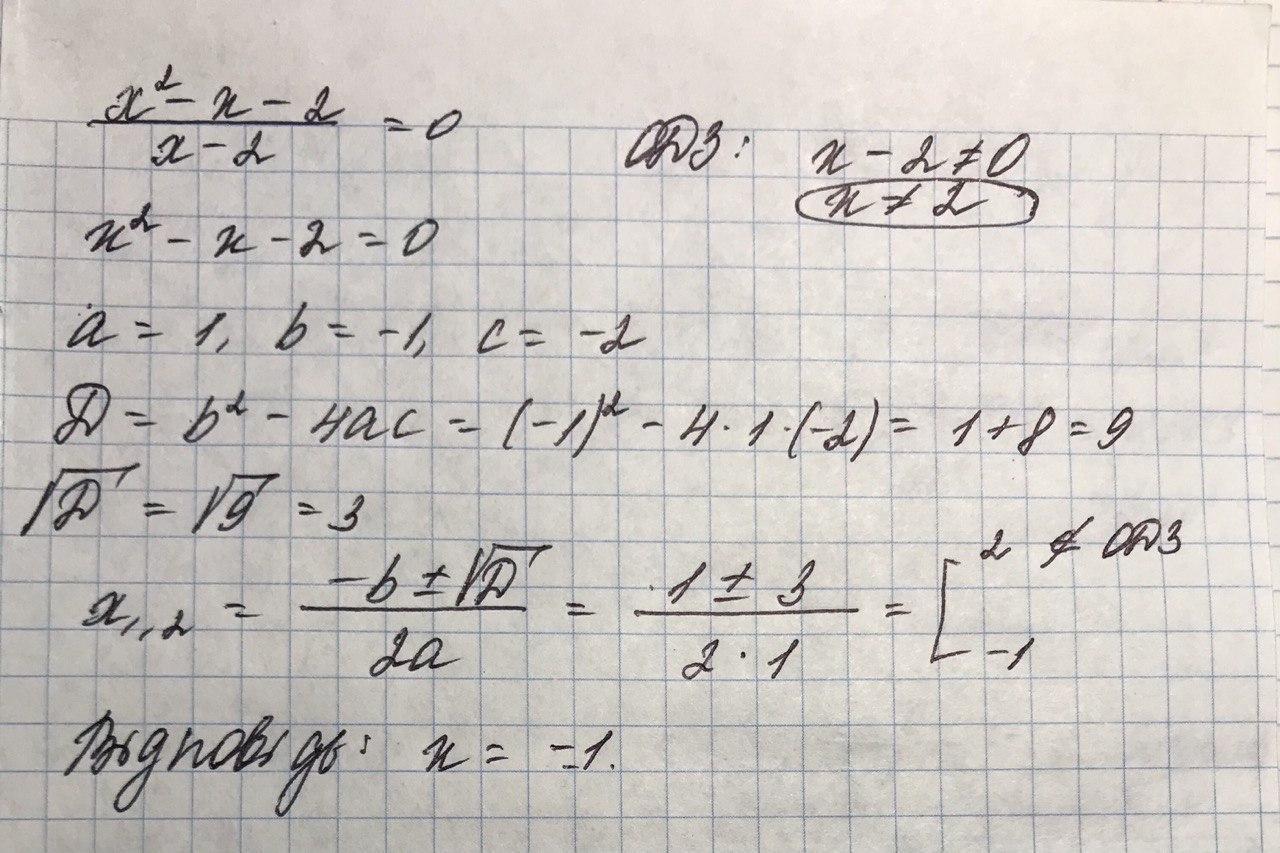 (x² - x - 2)/(x - 2) = 0
ОДЗ: x - 2 ≠ 0
x ≠ 2
x² - x - 2 = 0
a = 1, b = -1, c = -2
D = b² - 4ac = (-1)² - 4·1·(-2) = 1+8 = 9
√D = √9 = 3
x₁,₂ = (-b ± √D)/(2a) = (1 ± 3)/(2·1) = [ 2 ∉ ОДЗ
-1
Відповідь: x = -1.